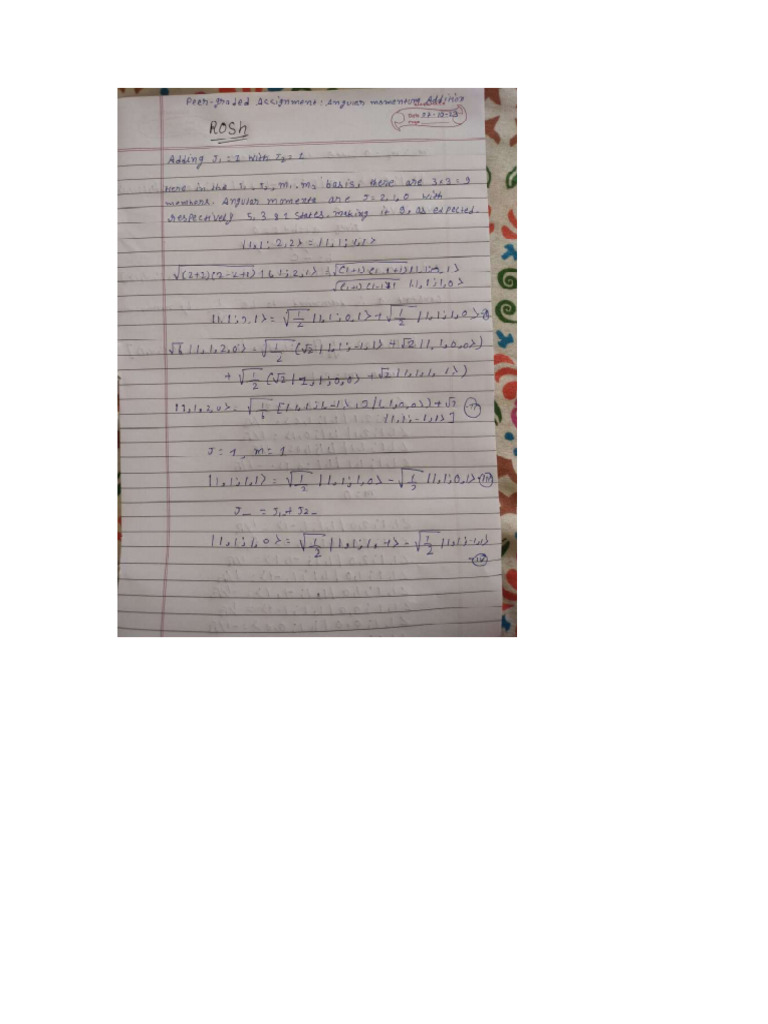 Peer-graded Assignment: Angular momentum Addition
Date 27-10-23
Page
ROSH
Adding J₁ = 1 with J₂ = 1
Here in the J₁, J₂, m₁, m₂ basis, there are 3×3 = 9
members. Angular momenta are J = 2, 1, 0 with
respectively 5, 3 & 1 states, making it 9, as expected.
|1,1; 2,2⟩ = |1,1; 1,1⟩
√(2+2)(2-2+1) |1,1; 2,1⟩
|1,1; 1,0⟩
|1,1; 2,1⟩ = √1/2 |1,1; 0,1⟩ + √1/2 |1,1; 1,0⟩
√6 |1,1,2,0⟩ = √1/2 (√2 |1,1; -1,1⟩ + √2 |1,1,0,0⟩)
+ √1/2 (√2 |1,1; 0,0⟩ + √2 |1,1,1,-1⟩)
|1,1,2,0⟩ = √1/6 [|1,1; 1,-1⟩ + 2|1,1,0,0⟩) +
|1,1; -1,1⟩]
J = 1, m = 1
|1,1; 1,1⟩ = √1/2 |1,1; 1,0⟩ - √1/2 |1,1; 0,1⟩ - (iii)
J₋ = J₁₋ + J₂₋
|1,1; 1,0⟩ = √1/2 |1,1; 1,-1⟩ - √1/2 |1,1; -1,1⟩